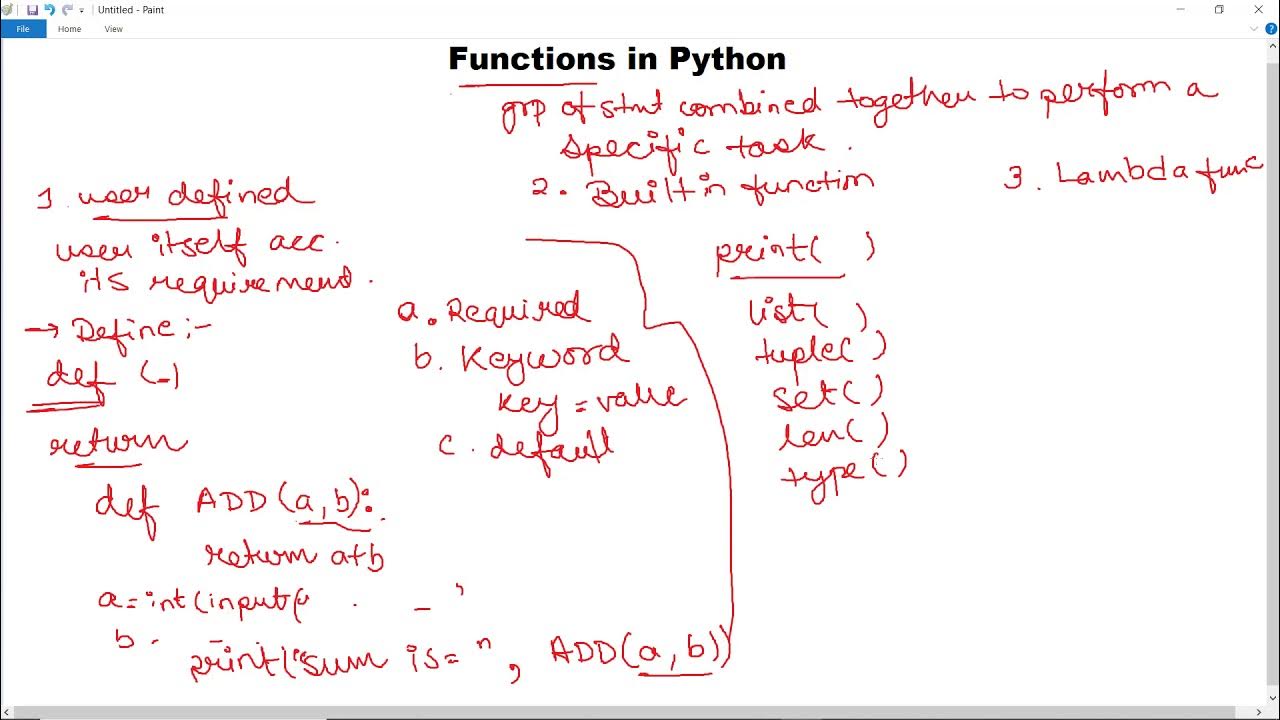 Untitled - Paint
File Home View
Functions in Python
grp of stmt combined together to perform a
specific task.
1. user defined
2. Built in function
3. Lambda func
user itself acc.
its requirement.
→ Define :-
def (_)
return
def ADD(a,b):
return a+b
a=int(input(" . _ "
b -
print("sum is= ", ADD(a,b))
a. Required
b. Keyword
key = value
c. default
print( )
list( )
tuple( )
set( )
len( )
type( )